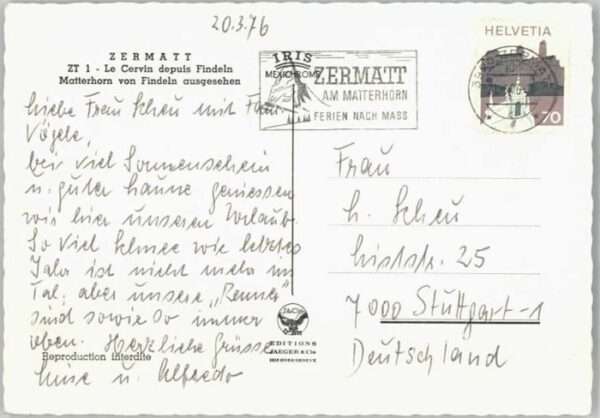 20.3.76
ZERMATT
ZT 1 - Le Cervin depuis Findeln
Matterhorn von Findeln ausgesehen
Liebe Frau Scheu mit Fam.
Vögele,
bei viel Sonnenschein
u. guter Laune geniessen
wir hier unseren Urlaub.
So viel Schnee wie letztes
Jahr ist nicht mehr im
Tal, aber unsere „Renner"
sind sowieso immer
oben. Herzliche Grüsse
Luise u. Alfredo
Reproduction interdite
IRIS
MEXICHROME
ZERMATT
AM MATTERHORN
FERIEN NACH MASS
EDITIONS
JAEGER & Cie
HELVETIA
70
Frau
L. Scheu
Liststr. 25
7000 Stuttgart-1
Deutschland